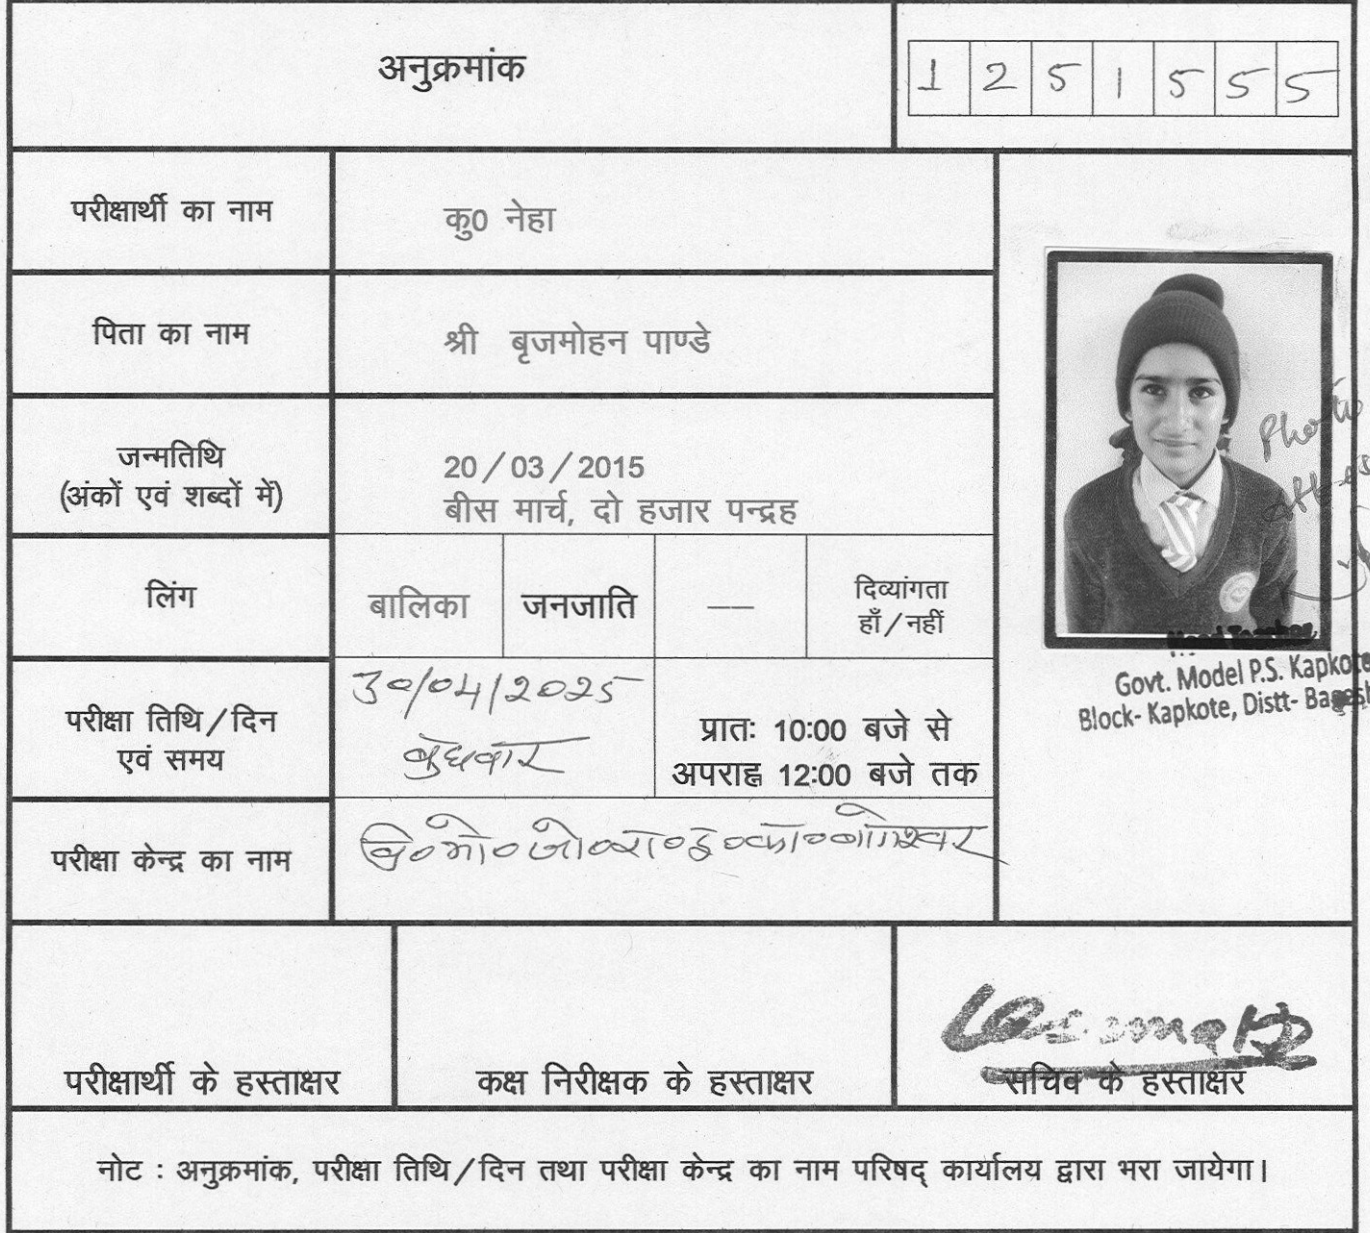 अनुक्रमांक
1 2 5 1 5 5 5
परीक्षार्थी का नाम
कु0 नेहा
पिता का नाम
श्री बृजमोहन पाण्डे
जन्मतिथि
(अंकों एवं शब्दों में)
20/03/2015
बीस मार्च, दो हजार पन्द्रह
लिंग
बालिका
जनजाति
—
दिव्यांगता
हाँ/नहीं
परीक्षा तिथि/दिन
एवं समय
30/04/2025
बुधवार
प्रातः 10:00 बजे से
अपराह्न 12:00 बजे तक
परीक्षा केन्द्र का नाम
वि०मो०जो०रा०इ०का०बागेश्वर
Photo
Head Teacher
Govt. Model P.S. Kapkote
Block- Kapkote, Distt- Bagesh
परीक्षार्थी के हस्ताक्षर
कक्ष निरीक्षक के हस्ताक्षर
सचिव के हस्ताक्षर
नोट : अनुक्रमांक, परीक्षा तिथि/दिन तथा परीक्षा केन्द्र का नाम परिषद् कार्यालय द्वारा भरा जायेगा।